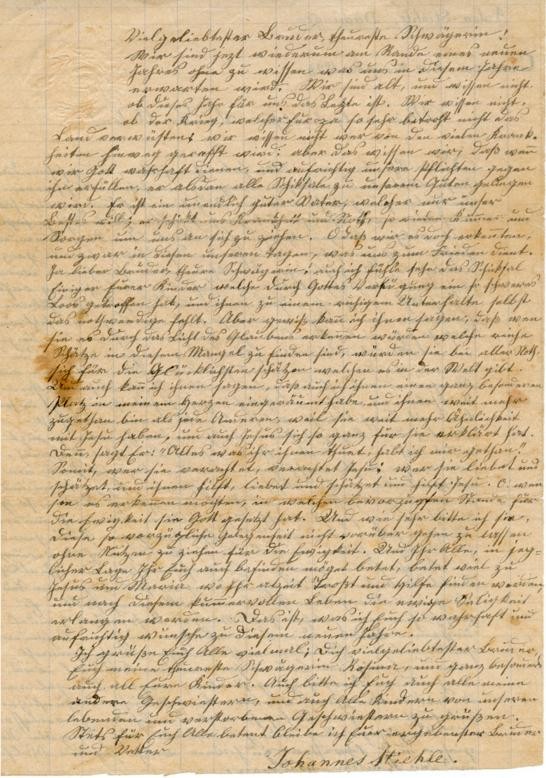 Vielgeliebtester Bruder, theureste Schwägerin!
Wir sind jezt wiederum am Rande eines neuen
Jahres ohne zu wissen was uns in diesem Jahre
erwarten wird. Wir sind alt, und wissen nicht
ob dieses Jahr für uns das Lezte ist. Wir wissen nicht,
ob der Krieg, welcher so sehr betroht nicht das
Land verwüsten; wir wissen nicht wer von den vielen Krank-
heiten hinweg gerafft wird; aber das wissen wir, daß wenn
wir Gott wahrhaft dienen, und aufrichtig unsere Pflichten gegen
ihn erfüllen, er alsdan alle Schiksale zu unserem Guten gelingen
wird. Er ist ein unendlich gütiger Vater, welcher nur unser
Bestes will; er schikt uns Krankheit und Noth, so wie Kumer und
Sorgen um uns an sich zu ziehen. O daß wir es doch erkenten,
und zwar in diesen unseren Tagen, was uns zum Frieden dient.
Ja lieber Bruder, theure Schwägerin! auch ich fühle sehr das Schiksal
einiger Eurer Kinder welche durch Gottes Verfügung ein so schweres
Loos getroffen hat, und ihnen zu einem ruhigem Unterhalte selbst
das nothwendige fehlt. Aber gewiß kan ich ihnen sagen, daß wen
sie es durch das Licht des Glaubens erkenen würden welche reiche
Schätze in diesem Mangel zu finden sind, würden sie bei aller Noth
sich für die Glücklichsten schätzen welchen es in der Welt gibt.
Den auch kan ich ihnen sagen, daß auch ich ihnen einen ganz besonderen
Platz in meinem Herzen eingeräumt habe und ihnen weit mehr
zugethan bin als jede Anderen, weil sie weit mehr Ähnlichkeit
mit Jesu haben, und auch Jesus sich so ganz für sie erklärt hat.
Den, sagt Er: "Alles was ihr ihnen thuet, habt ihr mir gethan."
Somit, wer sie verachtet, verachtet Jesu; wer sie liebet und
schätzet, und ihnen hilft, liebet und schätzet und hilft Jesu. O, wen
sie es erkenen möchten, in welchen bevorzugten Stande für
die Ewigkeit sie Gott gesetzt hat. Und wie sehr bitte ich sie,
diese so vorzügliche Gelegenheit nicht vorüber gehen zu lassen
ohne Nutzen zu ziehen für die Ewigkeit. Und Ihr Alle, in jeg-
licher Lage Ihr Euch auch befinden möget betet, betet viel zu
Jesus und Maria wo Ihr alzeit Trost und Hilfe finden werdet,
und nach diesem kummervollen Leben die ewige Seligkeit
erlangen werden. Das ist, was ich Euch so wahrhaft und
aufrichtig wünsche zu diesem neuen Jahre.
Ich grüße Euch Alle vielmal, Dich vielgeliebtester Bruder,
und meine theureste Schwägerin Rosina, und ganz besonders
auch all Eure Kinder. Auch bitte ich Euch auch alle meine
andere Geschwistern, und auch Alle Kindern von unseren
lebenden und verstorbenen Geschwistern zu grüßen.
Stets für Euch Alle betend bleibe ich Euer ergebenster Bruder
und Vetter
Johannes Stiehle.